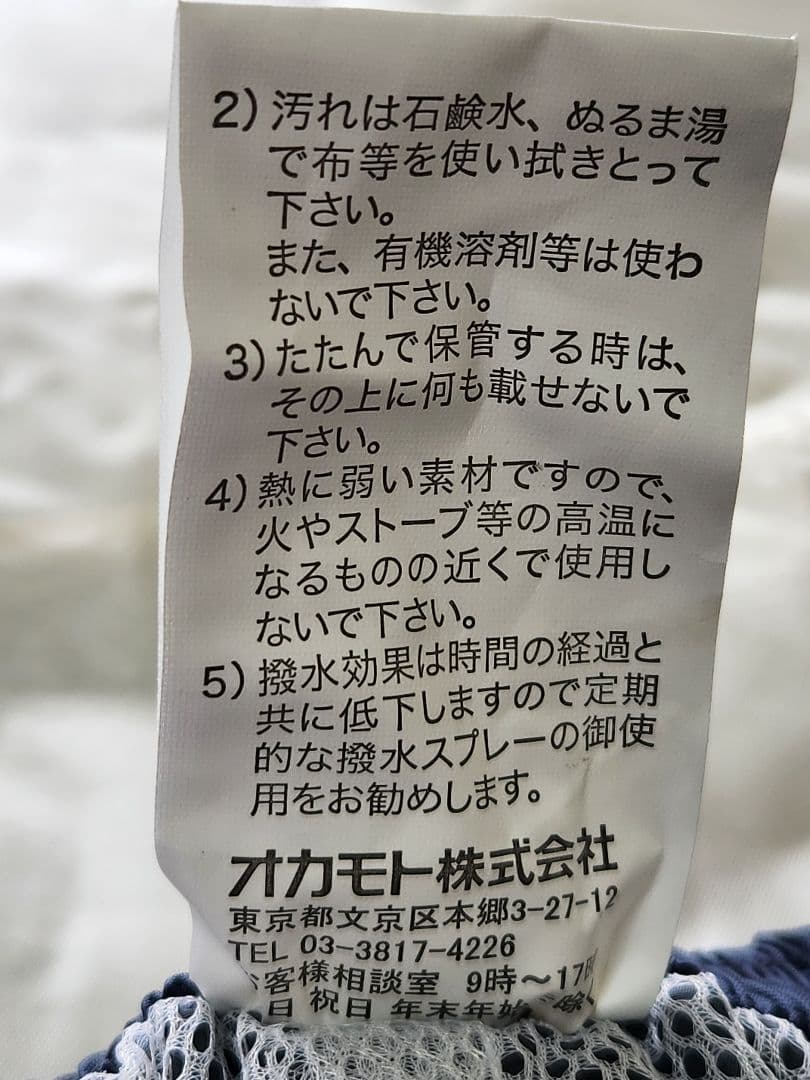 2)汚れは石鹸水、ぬるま湯
で布等を使い拭きとって
下さい。
また、有機溶剤等は使わ
ないで下さい。
3)たたんで保管する時は、
その上に何も載せないで
下さい。
4)熱に弱い素材ですので、
火やストーブ等の高温に
なるものの近くで使用し
ないで下さい。
5)撥水効果は時間の経過と
共に低下しますので定期
的な撥水スプレーの御使
用をお勧めします。
オカモト株式会社
東京都文京区本郷3-27-12
TEL 03-3817-4226
お客様相談室 9時～17時
日 祝日 年末年始 除く